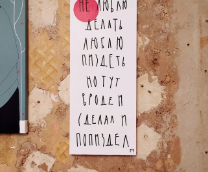 НЕ ЛЮБЛЮ
ДЕЛАТЬ
ЛЮБЛЮ
ПИЗДЕТЬ
НО ТУТ
ВРОДЕ И
СДЕЛАЛ И
ПОПИЗДЕЛ